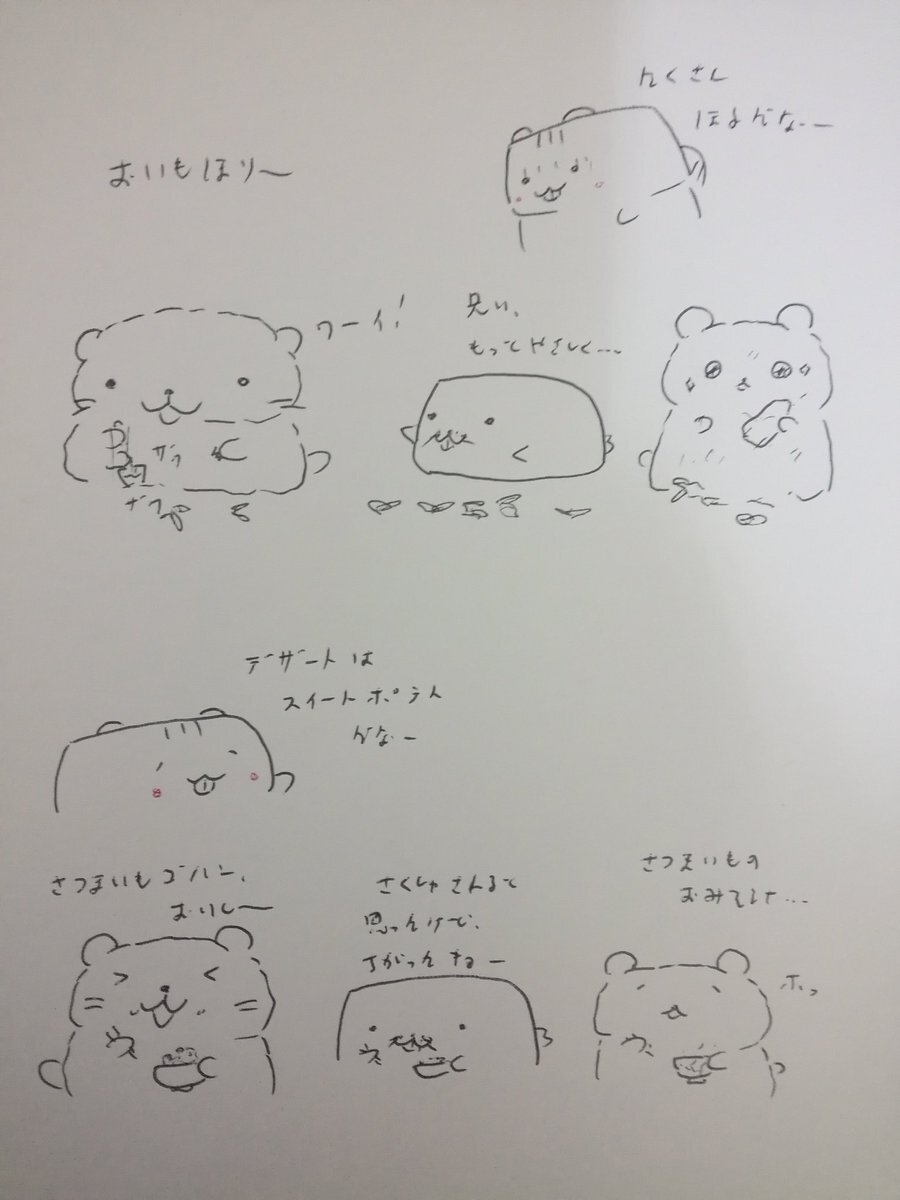 おいもほり〜
たくさん
ほるんだなー
ワーイ!
兄い、
もってやさしく…
ザク
ザク
デザートは
スイートポテト
だなー
さつまいもゴハン、
おいしー
さくしゃさんると
思ったけど、
ちがったねー
さつまいもの
おみそしる…
ホッ